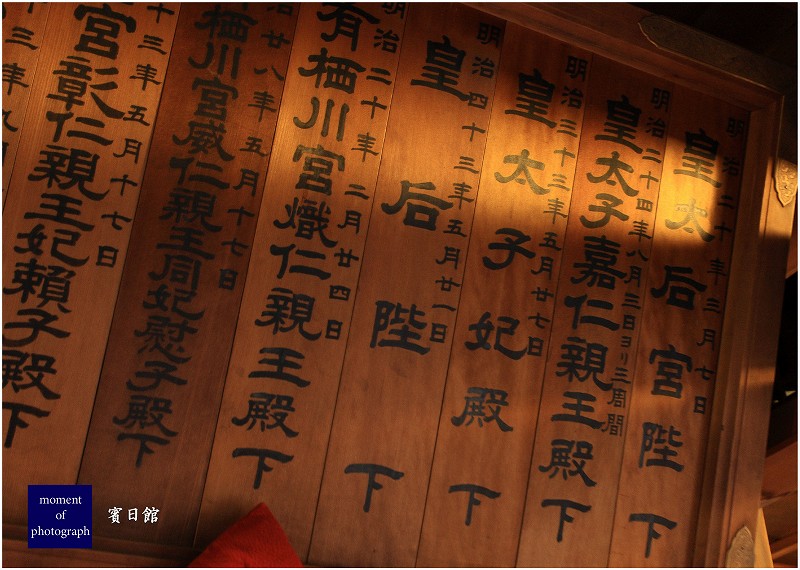 明治二十年三月七日
皇太后宮陛下
明治二十四年八月三日ヨリ三周間
皇太子嘉仁親王殿下
明治三十三年五月廿七日
皇太子妃殿下
明治四十三年五月廿一日
皇后陛下
明治二十年二月廿四日
有栖川宮熾仁親王殿下
治廿八年五月十七日
栖川宮威仁親王同妃慰子殿下
十三年五月十七日
宮彰仁親王妃頼子殿下
三年九月
moment
of
photograph
賓日館